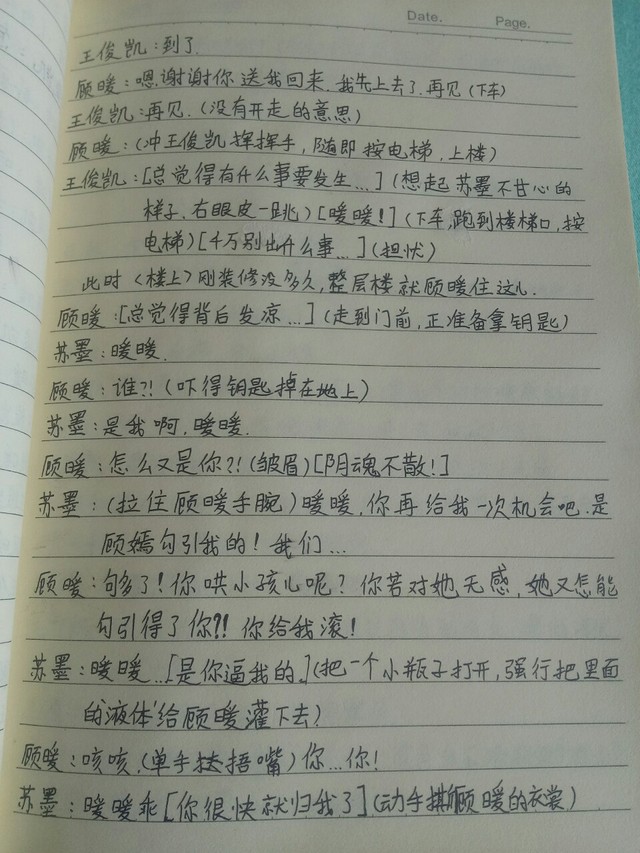 Date.    Page.
王俊凯:到了.
顾暖:嗯.谢谢你送我回来.我先上去了.再见(下车)
王俊凯:再见.(没有开走的意思)
顾暖:(冲王俊凯挥挥手,随即按电梯,上楼)
王俊凯:[总觉得有什么事要发生...](想起苏墨不甘心的
样子、右眼皮一跳)[暖暖!](下车,跑到楼梯口,按
电梯)[千万别出什么事...](担忧)
此时〈楼上〉刚装修没多久,整层楼就顾暖住这儿.
顾暖:[总觉得背后发凉...](走到门前,正准备拿钥匙)
苏墨:暖暖.
顾暖:谁?!(吓得钥匙掉在地上)
苏墨:是我啊,暖暖.
顾暖:怎么又是你?!(皱眉)[阴魂不散!]
苏墨:(拉住顾暖手腕)暖暖,你再给我一次机会吧.是
顾嫣勾引我的!我们...
顾暖:句多了!你哄小孩儿呢?你若对她无感,她又怎能
勾引得了你?!你给我滚!
苏墨:暖暖...[是你逼我的.](把一个小瓶子打开,强行把里面
的液体给顾暖灌下去)
顾暖:咳咳,(单手捂嘴)你...你!
苏墨:暖暖乖[你很快就归我了](动手撕顾暖的衣裳)